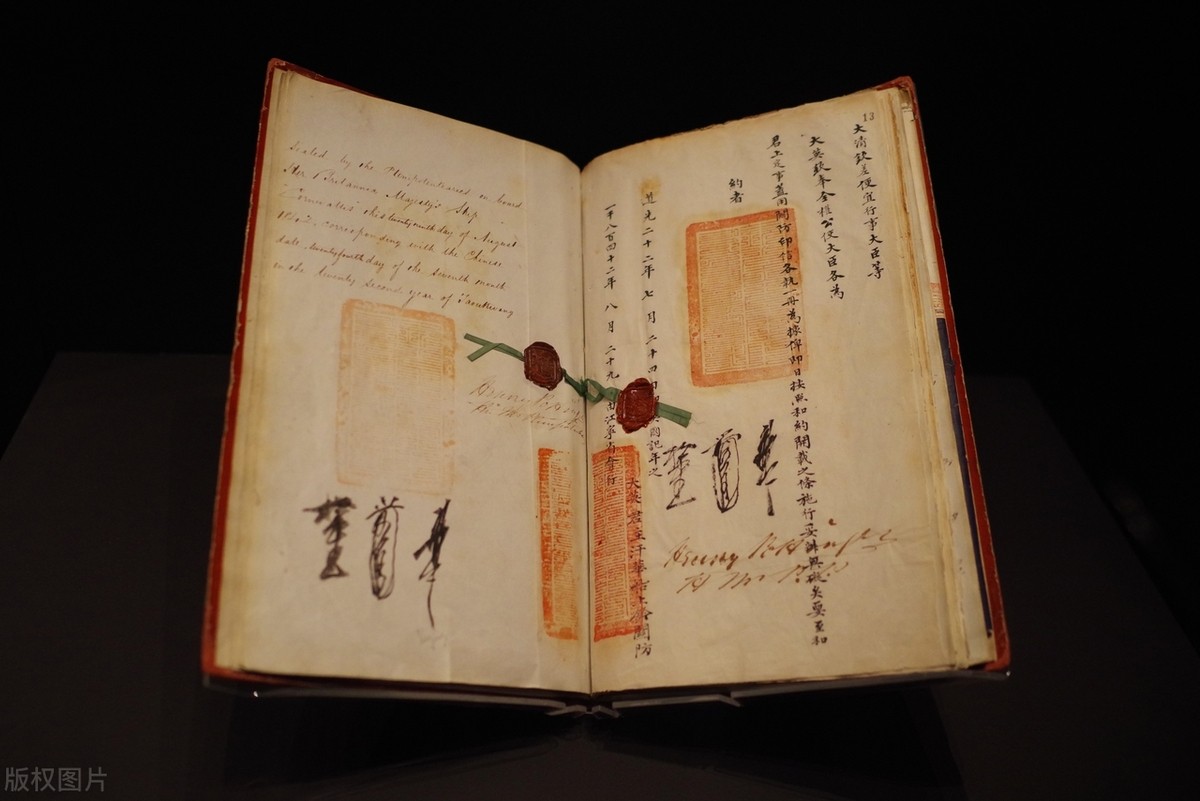 Sealed by the Plenipotentiaries on board
Her Britannic Majesty's Ship
"Cornwallis" this twenty ninth day of August
1842, corresponding with the Chinese
date, twenty fourth day of the seventh month
in the twenty second year of Taoukwang
Henry Pottinger
13
大清欽差便宜行事大臣等
大英欽奉全權公使大臣各為
君上定事蓋用關防印信各執一冊為據俾即日按照和約開載之條施行妥辦無礙矣要至和
約者
道光二十二年七月二十四日即英國記年之
一千八百四十二年八月二十九日由江寧省會行
大英君主汗華
關防
Henry Pottinger
版权图片